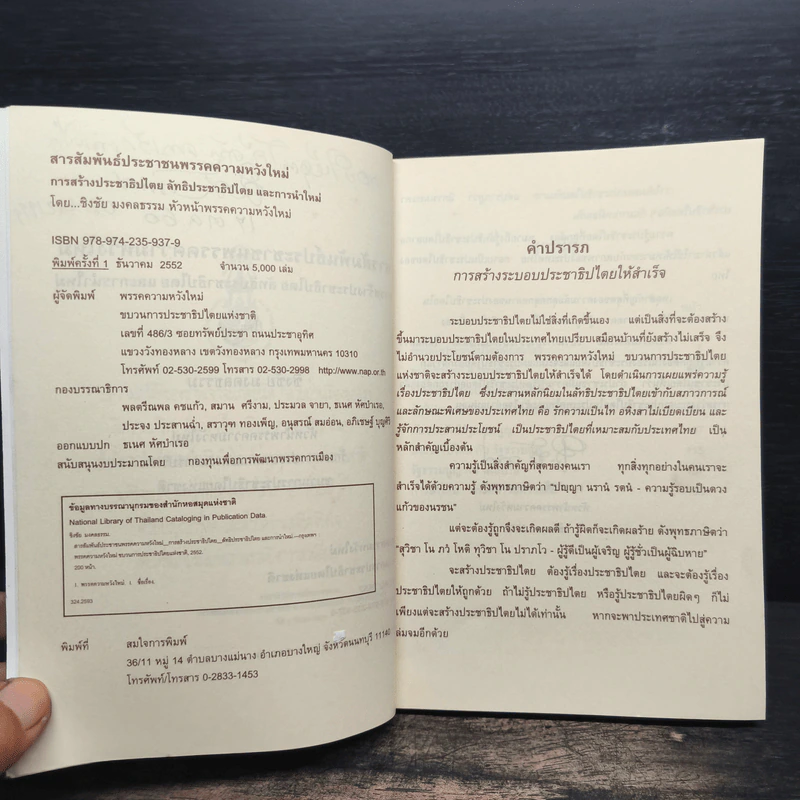 สารสัมพันธ์ประชาชนพรรคความหวังใหม่
การสร้างประชาธิปไตย ลัทธิประชาธิปไตย และการนำใหม่
โดย...ชิงชัย มงคลธรรม หัวหน้าพรรคความหวังใหม่
ISBN 978-974-235-937-9
พิมพ์ครั้งที่ 1 ธันวาคม 2552 จำนวน 5,000 เล่ม
ผู้จัดพิมพ์ พรรคความหวังใหม่
ขบวนการประชาธิปไตยแห่งชาติ
เลขที่ 486/3 ซอยทรัพย์ประชา ถนนประชาอุทิศ
แขวงวังทองหลาง เขตวังทองหลาง กรุงเทพมหานคร 10310
โทรศัพท์ 02-530-2599 โทรสาร 02-530-2998 http://www.nap.or.th
กองบรรณาธิการ
พลตรีณพล คชแก้ว, สมาน ศรีงาม, ประมวล จายา, ธเนศ หัศบำเรอ,
ประจง ประสานฉ่ำ, สราวุฑ ทองเพ็ญ, อนุสรณ์ สมอ่อน, อภิเชษฐ์ บุญศิริ
ออกแบบปก ธเนศ หัศบำเรอ
สนับสนุนงบประมาณโดย กองทุนเพื่อการพัฒนาพรรคการเมือง
ข้อมูลทางบรรณานุกรมของสำนักหอสมุดแห่งชาติ
National Library of Thailand Cataloging in Publication Data
ชิงชัย มงคลธรรม.
สารสัมพันธ์ประชาชนพรรคความหวังใหม่__การสร้างประชาธิปไตย__ลัทธิประชาธิปไตย และการนำใหม่.--กรุงเทพฯ
พรรคความหวังใหม่ ขบวนการประชาธิปไตยแห่งชาติ, 2552.
200 หน้า.
1. พรรคความหวังใหม่. I. ชื่อเรื่อง.
324.2593
พิมพ์ที่ สมใจการพิมพ์
36/11 หมู่ 14 ตำบลบางแม่นาง อำเภอบางใหญ่ จังหวัดนนทบุรี 11140
โทรศัพท์/โทรสาร 0-2833-1453
คำปรารภ
การสร้างระบอบประชาธิปไตยให้สำเร็จ
ระบอบประชาธิปไตยไม่ใช่สิ่งที่เกิดขึ้นเอง แต่เป็นสิ่งที่จะต้องสร้าง
ขึ้นมาระบอบประชาธิปไตยในประเทศไทยเปรียบเสมือนบ้านที่ยังสร้างไม่เสร็จ จึง
ไม่อำนวยประโยชน์ตามต้องการ พรรคความหวังใหม่ ขบวนการประชาธิปไตย
แห่งชาติจะสร้างระบอบประชาธิปไตยให้สำเร็จได้ โดยดำเนินการเผยแพร่ความรู้
เรื่องประชาธิปไตย ซึ่งประสานหลักนิยมในลัทธิประชาธิปไตยเข้ากับสภาวการณ์
และลักษณะพิเศษของประเทศไทย คือ รักความเป็นไท อหิงสาไม่เบียดเบียน และ
รู้จักการประสานประโยชน์ เป็นประชาธิปไตยที่เหมาะสมกับประเทศไทย เป็น
หลักสำคัญเบื้องต้น
ความรู้เป็นสิ่งสำคัญที่สุดของคนเรา ทุกสิ่งทุกอย่างในคนเราจะ
สำเร็จได้ด้วยความรู้ ดังพุทธภาษิตว่า “ปญฺญา นรานํ รตนํ - ความรู้รอบเป็นดวง
แก้วของนรชน”
แต่จะต้องรู้ถูกจึงจะเกิดผลดี ถ้ารู้ผิดก็จะเกิดผลร้าย ดังพุทธภาษิตว่า
“สุวิชา โน ภวํ โหติ ทุวิชา โน ปราภโว - ผู้รู้ดีเป็นผู้เจริญ ผู้รู้ชั่วเป็นผู้ฉิบหาย”
จะสร้างประชาธิปไตย ต้องรู้เรื่องประชาธิปไตย และจะต้องรู้เรื่อง
ประชาธิปไตยให้ถูกด้วย ถ้าไม่รู้ประชาธิปไตย หรือรู้ประชาธิปไตยผิดๆ ก็ไม่
เพียงแต่จะสร้างประชาธิปไตยไม่ได้เท่านั้น หากจะพาประเทศชาติไปสู่ความ
ล่มจมอีกด้วย